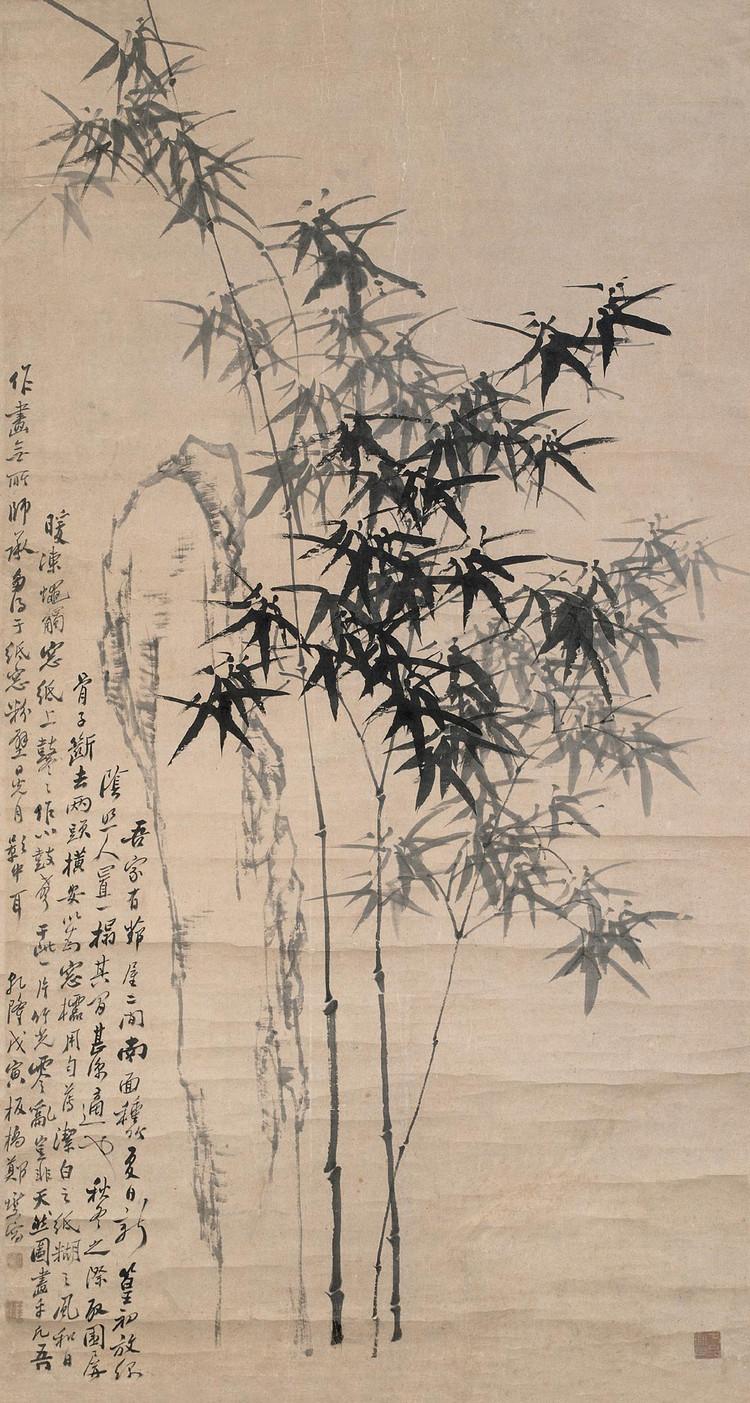 吾家有茆屋二間南面種竹夏日新篁初放綠
陰照人置一榻其中甚涼適也秋冬之際取圍屏
骨子斷去兩頭橫安以為窗櫺用勻薄潔白之紙糊之風和日
暖凍蠅觸窗紙上鼕鼕作小鼓聲于此一片竹光零亂豈非天然圖畫乎凡吾
作畫無所師承多得于紙窗粉壁日光月影中耳 乾隆戊寅板橋鄭燮寫